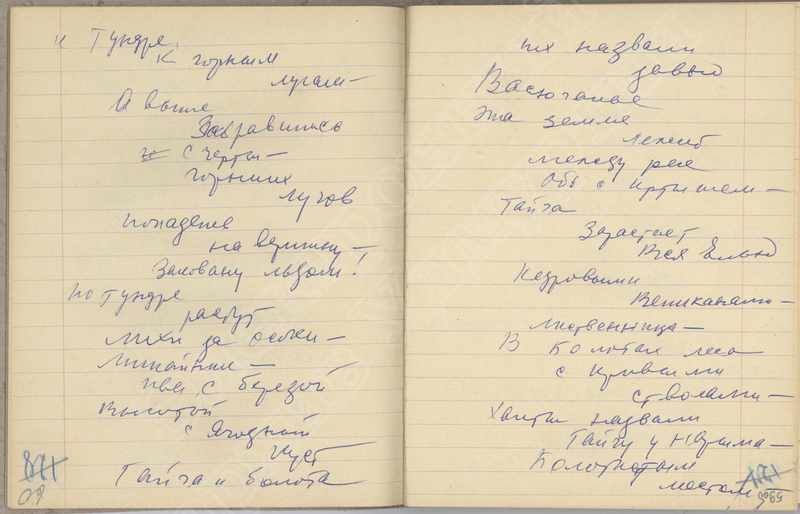 к Тундре
к горным
лугам —
А выше
Забравшись
с черты —
горных
лугов
попадёшь
на вершину —
Закован льдом!
По тундре
растут
мхи да осоки —
лишайник —
ива с березой
высотой
с ягодный
куст
Тайга и болота
871
60
их назвали
Васюганье
Эта земля
лежит
между рек
Обь с Иртышем —
Тайга
Зарастает
Вся Елью
Кедровыми
Великанами —
лиственница —
В болотах леса
с кривыми
стволами —
Ханты назвали
Тайгу у Нарыма —
Болотистым
местом